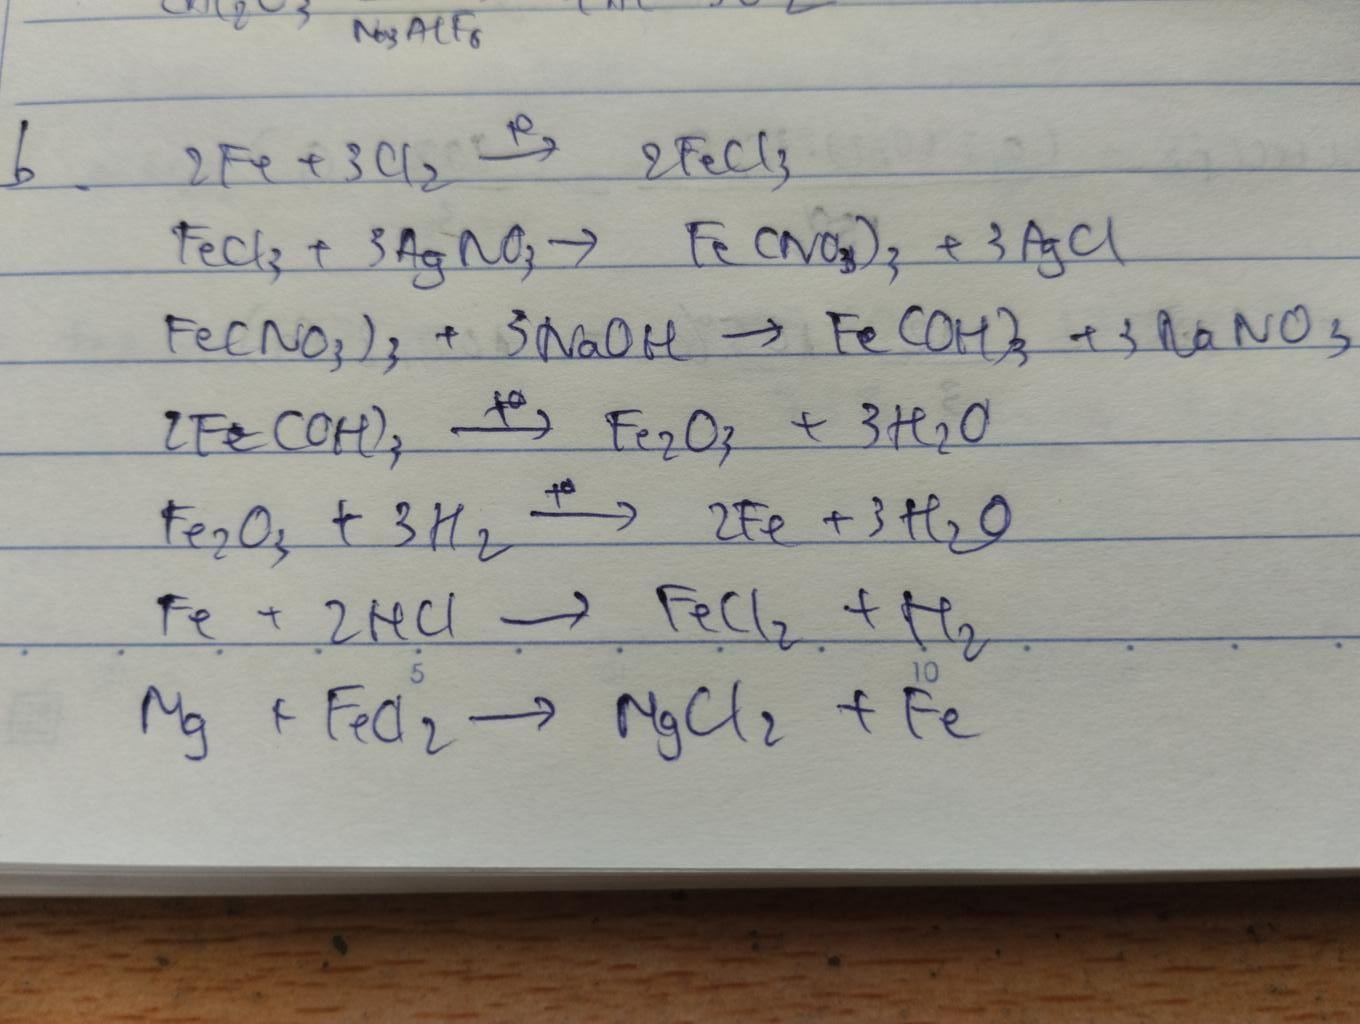 Na3AlF6
b. 2Fe + 3Cl2 t°→ 2FeCl3
FeCl3 + 3AgNO3 → Fe(NO3)3 + 3AgCl
Fe(NO3)3 + 3NaOH → Fe(OH)3 + 3NaNO3
2Fe(OH)3 t°→ Fe2O3 + 3H2O
Fe2O3 + 3H2 t°→ 2Fe + 3H2O
Fe + 2HCl → FeCl2 + H2
5 10
Mg + FeCl2 → MgCl2 + Fe